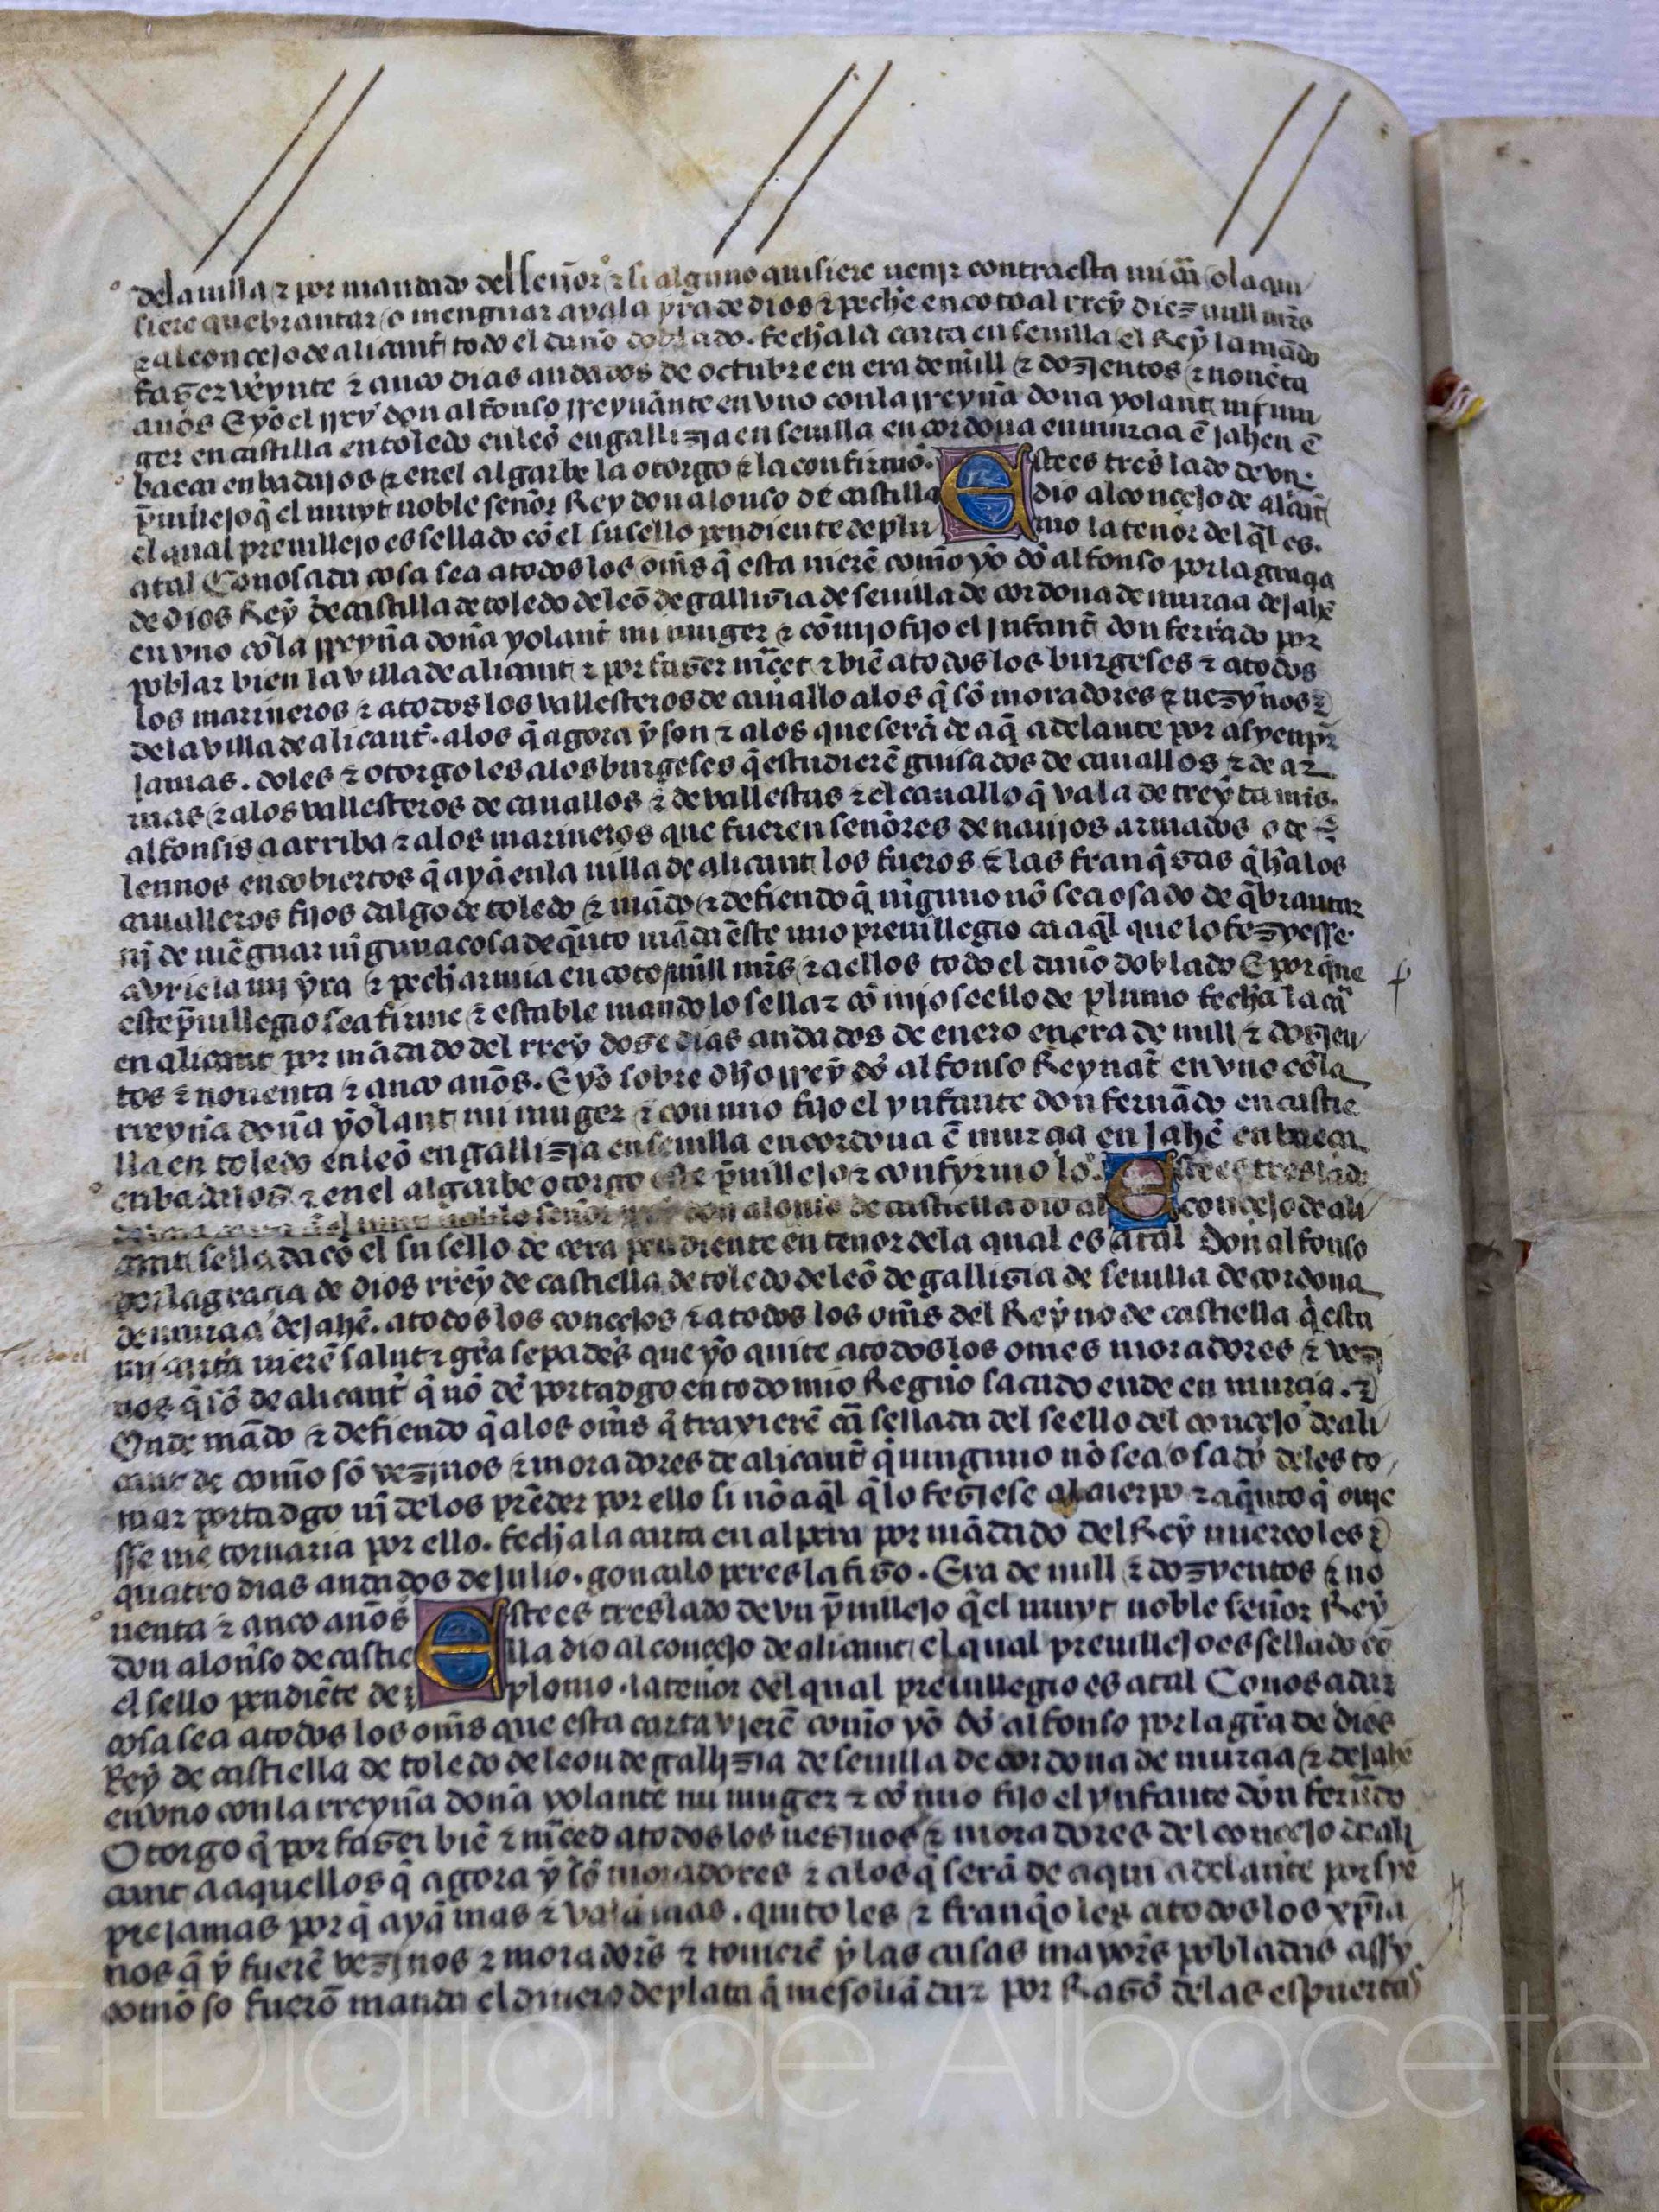 dela uilla ⁊ por mandado del señor ⁊ si alguno quisiere uenir contra esta mi cã o la qui
siere quebrantar o menguar aya la yra de dios ⁊ peche en coto al rrey diez mill mrs
⁊ al concejo de alicant todo el daño doblado. fecha la carta en seuilla el Rey la mãdo
fazer veynte ⁊ cinco dias andados de octubre en era de mill ⁊ dozientos ⁊ nouẽta
años E yo el rrey don alfonso rreynãnte en vno con la rreyna doña yolant mi mu
ger en castilla en toledo en leõ en gallizia en seuilla en cordoua en murcia ẽ jahen ẽ
baeça en badajos ⁊ en el algarbe la otorgo ⁊ la confirmo. Este es treslado de vn
p̃uillejo q̃ el muyt noble señor Rey don alonso de castilla dio al concejo de alicãt
el qual preuillejo es sellado cõ el su sello pendiente de plu mo la tenor del q̃l es.
atal Conosçida cosa sea a todos los om̃s q̃ esta vierẽ com̃o yo dõ alfonso por la graçia
de dios Rey de castilla de toledo de leõ de gallizia de seuilla de cordoua de murcia de jahẽ
en vno cõ la rreyña doña yolant mi muger ⁊ cõ mio fijo el jnfant don ferrãdo por
poblar bien la villa de alicant ⁊ por fazer m̃cet ⁊ biẽ a todos los burgeses ⁊ a todos
los marineros ⁊ a todos los vallesteros de cauallo a los q̃ sõ moradores ⁊ uezynos
de la villa de alicant. a los q̃ agora y son ⁊ a los que serã de aq̃ adelante por a syenpr̃
jamas. doles ⁊ otorgoles a los burgeses q̃ estudierẽ guisados de cauallos ⁊ de ar
mas ⁊ a los vallesteros de cauallos ⁊ de vallestas ⁊ el cauallo q̃ vala de treyta mrs.
alfonsis a arriba ⁊ a los marineros que fueren señores de nauios armados o de
lennos encobiertos q̃ ayã en la uilla de alicant los fueros ⁊ las franq̃zas q̃ hã los
caualleros fijos dalgo de toledo ⁊ mãdo ⁊ defiendo q̃ nĩguno nõ sea osado de q̃brantar
nj de mẽguar nĩguna cosa de q̃nto mãda ẽste mio preuillegio ca aq̃l que lo fezyesse
avrie la mj yra ⁊ pecharmia en coto mill mrs ⁊ a ellos todo el daño doblado E por que
este p̃uillegio sea firme ⁊ estable mandolo sellar cõ mjo seello de plumo fecha la cã
en alicant por mãdado del rrey doze dias andados de enero en era de mill ⁊ dozien
tos ⁊ nouenta ⁊ cinco años. E yo sobre dho rrey dõ alfonso Reynãt en vno cõ la
rreyña doña yolant mi muger ⁊ con mio fijo el ynfante don fernãdo en castie
lla en toledo en leõ en gallizia en seuilla en cordoua ẽ murcia en jahẽ en baeça
en badajos ⁊ en el algarbe otorgo este p̃uillejo ⁊ confyrmo lo. Este es treslado
muy noble señor rrey don alonso de castiella dio al concejo de ali
cant sellada cõ el su sello de cera pendiente en tenor de la qual es atal Don alfonso
por la gracia de dios rrey de castiella de toledo de leõ de gallizia de seuilla de cordoua
de murcia de jahẽ. a todos los concejos ⁊ a todos los om̃s del Reyno de castiella q̃ esta
mj carta vierẽ salut ⁊ grã sepades que yo quite a todos los omes moradores ⁊ vez
nos q̃ sõ de alicant q̃ nõ dẽ portadgo en todo mio Regno sacado ende en murcia. ⁊
Onde mãdo ⁊ defiendo q̃ a los om̃s q̃ traxierẽ cã sellada del seello del concejo de ali
cant de com̃o sõ vezinos ⁊ moradores de alicant q̃ ninguno nõ sea osado de les to
mar portadgo nj de los prẽder por ello si nõ aq̃l q̃ lo feziese al cuerpo ⁊ a q̃nto q̃ ouie
sse me tornaria por ello. fecha la carta en por mãdado del Rey miercoles
quatro dias andados de julio. gonçalo peres la fizo. Era de mill ⁊ dozyentos ⁊ no
uenta ⁊ cinco años Este es treslado de vn p̃uillejo q̃ el muyt noble señor Rey
don alonso de castie lla dio al concejo de alicant el qual preuillejo es sellado cõ
el sello pendiẽte de plomo. la tenor del qual preuillegio es atal Conosçida
cosa sea a todos los om̃s que esta carta vierẽ com̃o yo dõ alfonso por la grã de dios
Rey de castiella de toledo de leon de gallizia de seuilla de cordoua de murcia ⁊ de jahẽ
en vno con la rreyña doña yolante mi muger ⁊ cõ mio fijo el ynfante don ferñdo
Otorgo q̃ por fazer biẽ ⁊ m̃ced a todos los uezinos ⁊ moradores del concejo de ali
cant a aquellos q̃ agora y sõ moradores ⁊ a los q̃ serã de aqui adelante por sye
pre jamas por q̃ ayã mas ⁊ valã mas. quitoles ⁊ franq̃oles a todos los xp̃ia
nos q̃ y fuerẽ vezinos ⁊ moradores ⁊ touierẽ y las casas mayores pobladas assy
como so fuero manda el dinero de plata q̃ me soliã dar por Razõ de las espuertas
El Digital de Albacete